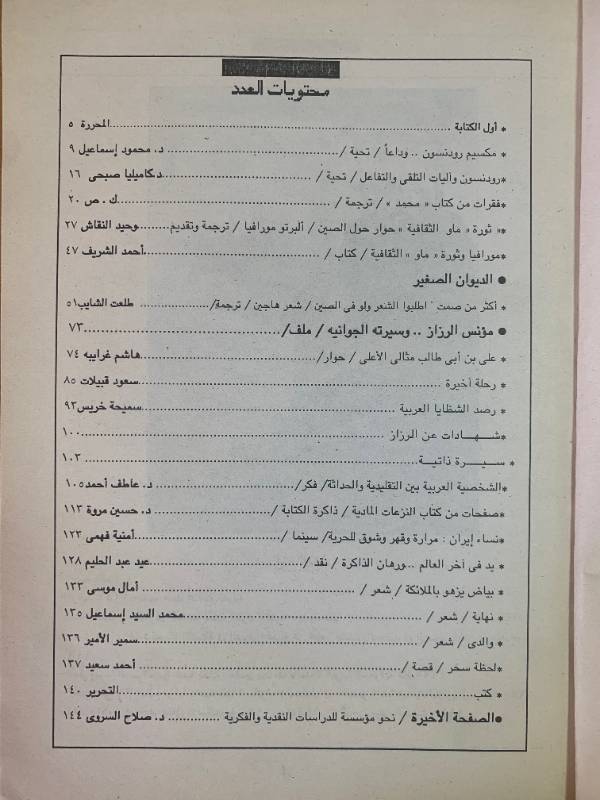 محتويات العدد
* أول الكتابة ........ المحررة ٥
* مكسيم رودنسون .. وداعاً / تحية / ........ د. محمود إسماعيل ٩
*رودنسون وآليات التلقى والتفاعل / تحية / ........ د.كاميليا صبحى ١٦
*فقرات من كتاب « محمد » / ترجمة / ........ ك . ص ٢٠
*« ثورة « ماو الثقافية » حوار حول الصين / ألبرتو مورافيا / ترجمة وتقديم ........ وحيد النقاش ٢٧
*مورافيا وثورة « ماو » الثقافية / كتاب / ........ أحمد الشريف ٤٧
● الديوان الصغير
* أكثر من صمت " اطلبوا الشعر ولو فى الصين / شعر هاجين / ترجمة/ ........ طلعت الشايب٥١
● مؤنس الرزاز .. وسيرته الجوانيه / ملف/ ........ ٧٣
* على بن أبى طالب مثالى الأعلى / حوار/ ........ هاشم غرايبه ٧٤
* رحلة أخيرة ........ سعود قبيلات ٨٥
* رصد الشظايا العربية ........ سميحة خريس٩٣
*شـــهـــادات عن الرزاز ........ ١٠٠
* ســـيـــرة ذاتيـــة ........ ١٠٣
*الشخصية العربية بين التقليدية والحداثة/ فكر/ ........ د. عاطف أحمد١٠٥
*صفحات من كتاب النزعات المادية / ذاكرة الكتابة / ........ د. حسين مروة ١١٣
*نساء إيران : مرارة وقهر وشوق للحرية/ سينما / ........ أمنية فهمى ١٢٣
* يد فى آخر العالم ...ورهان الذاكرة / نقد / ........ عيد عبد الحليم ١٢٨
* بياض يزهو بالملائكة / شعر / ........ أمال موسى ١٣٣
* نهاية / شعر / ........ محمد السيد إسماعيل ١٣٥
* والدى / شعر / ........ سمير الأمير ١٣٦
*لحظة سحر / قصة / ........ أحمد سعيد ١٣٧
* كتب ........ التحرير ١٤٠
●الصفحة الأخيرة / نحو مؤسسة للدراسات النقدية والفكرية ........ د. صلاح السروى ١٤٤